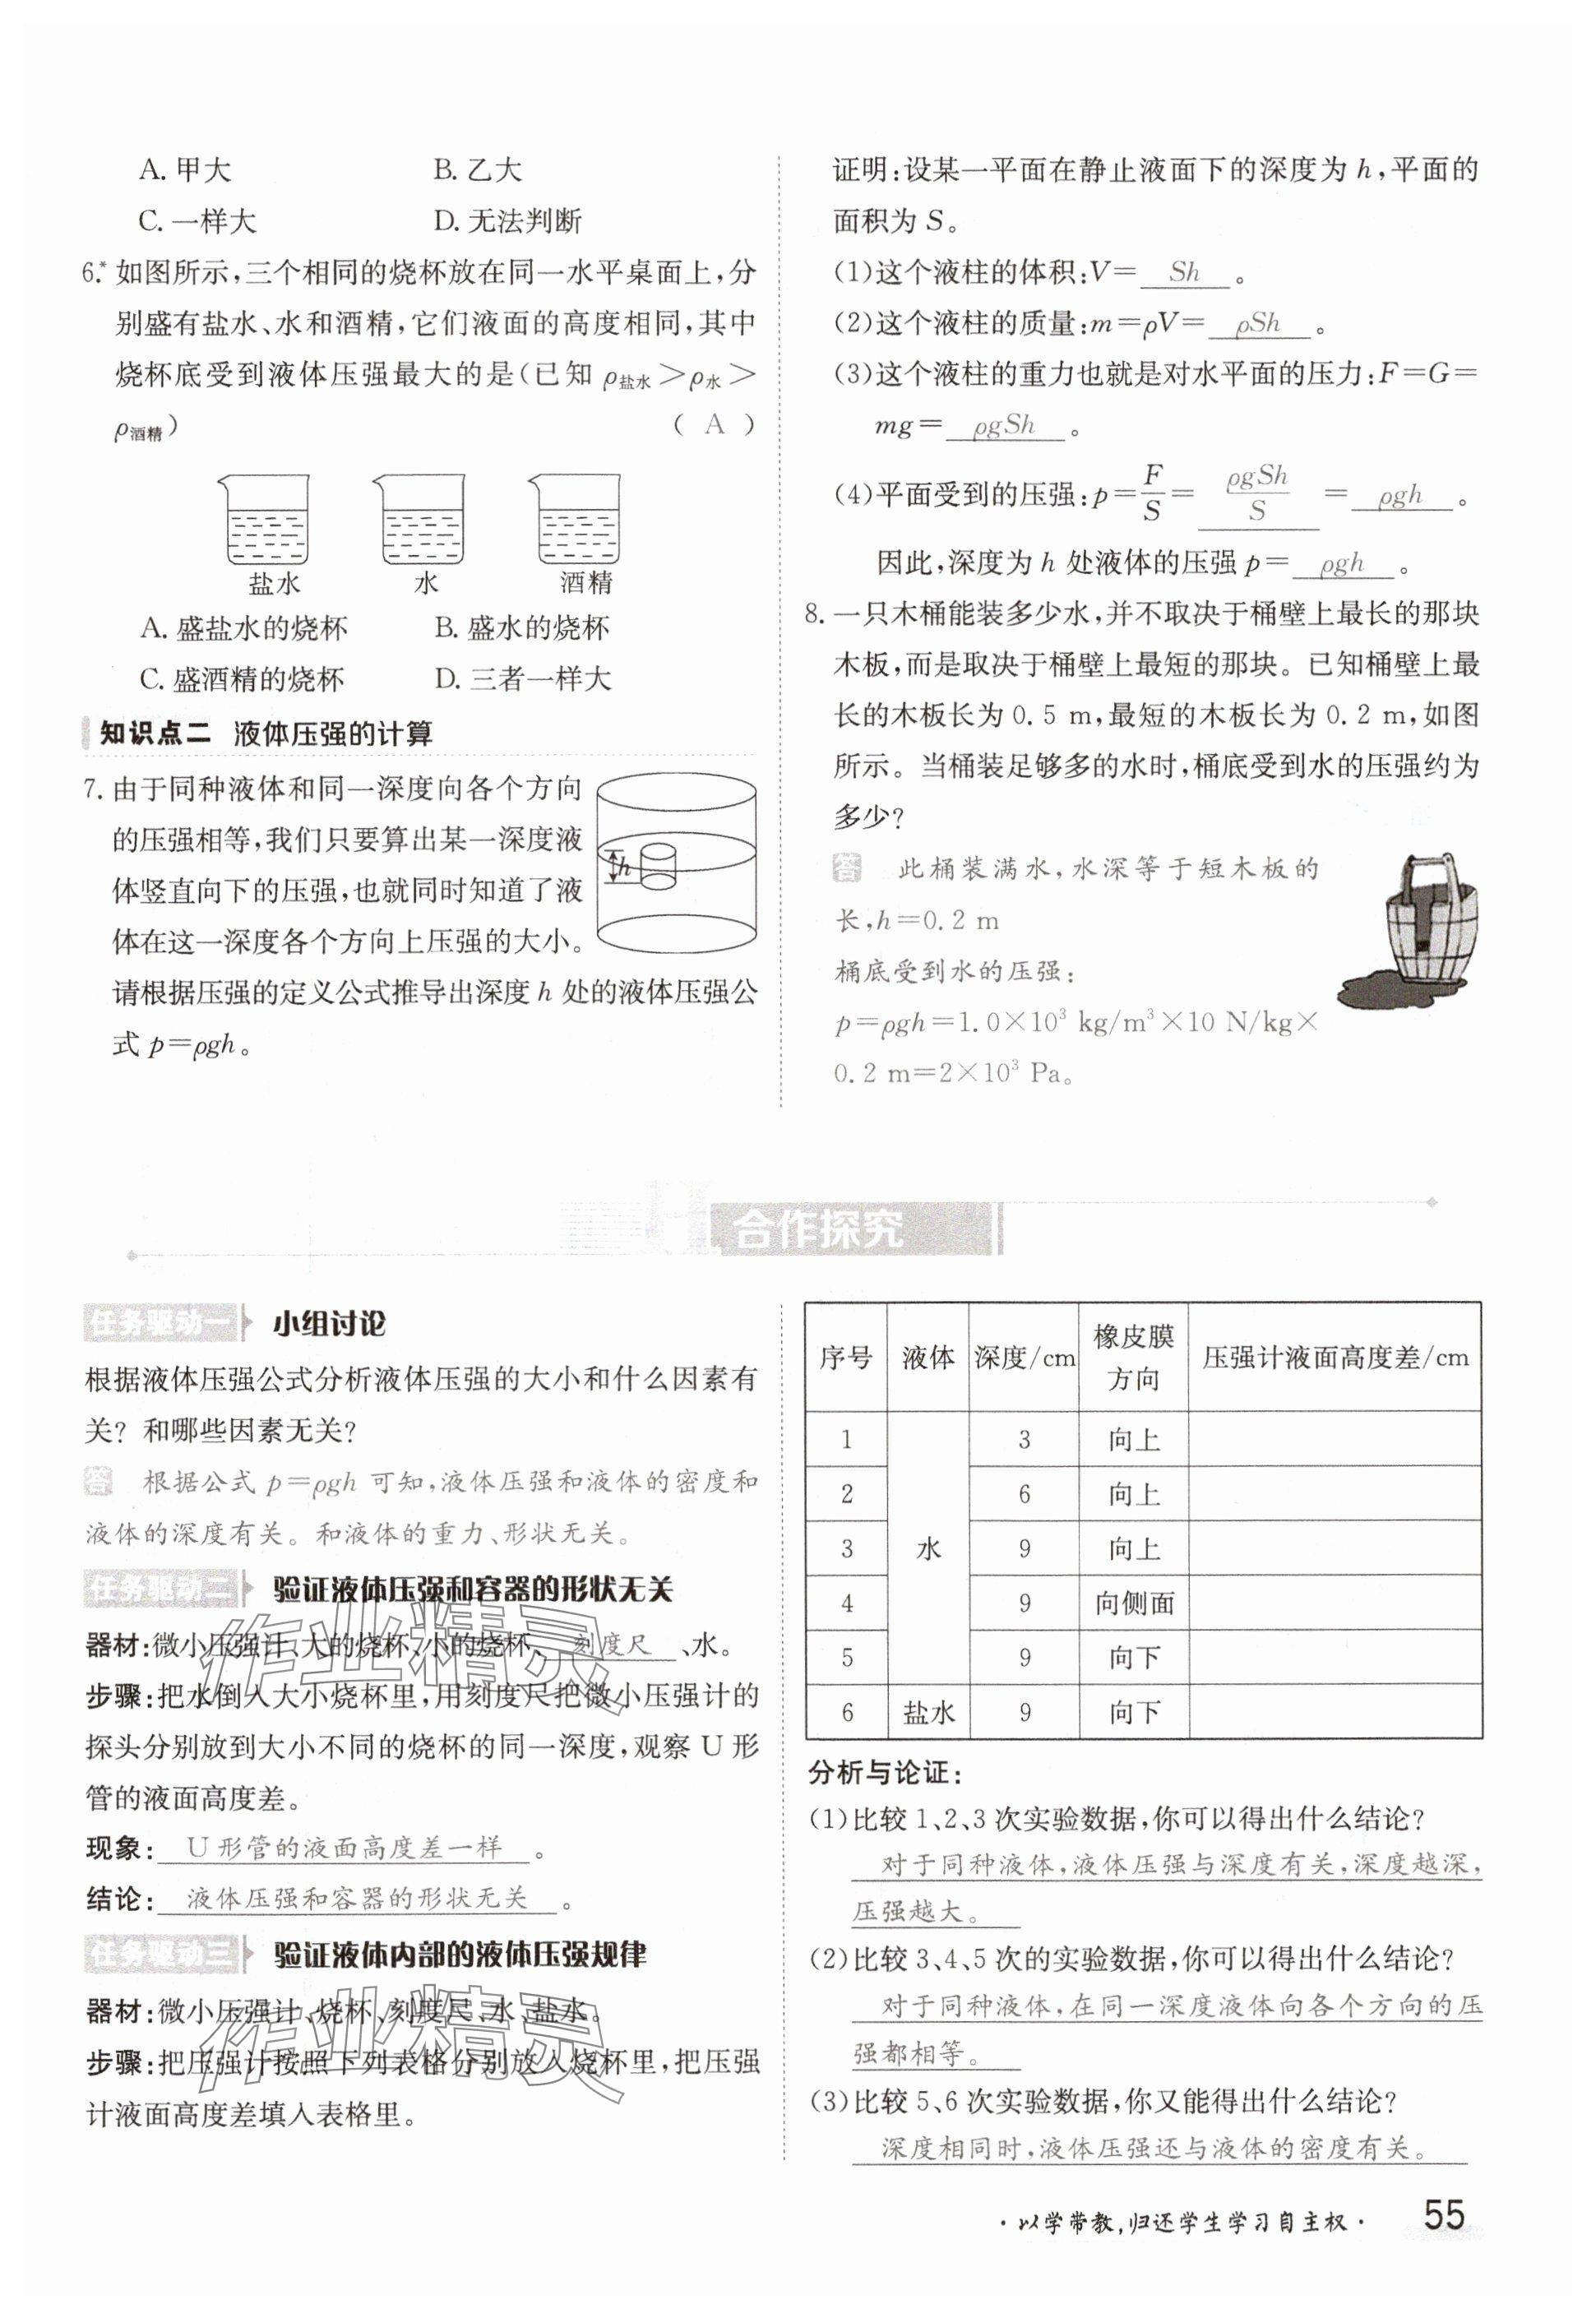 A. 甲大 B. 乙大
C. 一样大 D. 无法判断
6.* 如图所示,三个相同的烧杯放在同一水平桌面上,分
别盛有盐水、水和酒精,它们液面的高度相同,其中
烧杯底受到液体压强最大的是(已知 ρ盐水＞ρ水＞
ρ酒精) ( A )
盐水 水 酒精
A. 盛盐水的烧杯 B. 盛水的烧杯
C. 盛酒精的烧杯 D. 三者一样大
知识点二 液体压强的计算
7. 由于同种液体和同一深度向各个方向
的压强相等,我们只要算出某一深度液
体竖直向下的压强,也就同时知道了液
体在这一深度各个方向上压强的大小。
h
请根据压强的定义公式推导出深度 h 处的液体压强公
式 p=ρgh。
证明:设某一平面在静止液面下的深度为 h,平面的
面积为 S。
(1)这个液柱的体积:V= Sh 。
(2)这个液柱的质量:m=ρV= ρSh 。
(3)这个液柱的重力也就是对水平面的压力:F=G=
mg= ρgSh 。
(4)平面受到的压强:p=F/S= ρgSh/S = ρgh 。
因此,深度为 h 处液体的压强 p= ρgh 。
8. 一只木桶能装多少水,并不取决于桶壁上最长的那块
木板,而是取决于桶壁上最短的那块。已知桶壁上最
长的木板长为 0.5 m,最短的木板长为 0.2 m,如图
所示。当桶装足够多的水时,桶底受到水的压强约为
多少?
答 此桶装满水,水深等于短木板的
长,h=0.2 m
桶底受到水的压强:
p=ρgh=1.0×10³ kg/m³×10 N/kg×
0.2 m=2×10³ Pa。
合作探究
任务驱动一 小组讨论
根据液体压强公式分析液体压强的大小和什么因素有
关? 和哪些因素无关?
答 根据公式 p=ρgh 可知,液体压强和液体的密度和
液体的深度有关。和液体的重力、形状无关。
任务驱动二 验证液体压强和容器的形状无关
器材:微小压强计、大的烧杯、小的烧杯、 刻度尺 、水。
步骤:把水倒入大小烧杯里,用刻度尺把微小压强计的
探头分别放到大小不同的烧杯的同一深度,观察 U 形
管的液面高度差。
现象: U 形管的液面高度差一样 。
结论: 液体压强和容器的形状无关 。
任务驱动三 验证液体内部的液体压强规律
器材:微小压强计、烧杯、刻度尺、水、盐水。
步骤:把压强计按照下列表格分别放入烧杯里,把压强
计液面高度差填入表格里。
作业精灵
作业精灵
序号 液体 深度/cm 橡皮膜方向 压强计液面高度差/cm
1 3 向上
2 6 向上
3 水 9 向上
4 9 向侧面
5 9 向下
6 盐水 9 向下
分析与论证:
(1)比较 1、2、3 次实验数据,你可以得出什么结论?
对于同种液体,液体压强与深度有关,深度越深,
压强越大。
(2)比较 3、4、5 次的实验数据,你可以得出什么结论?
对于同种液体,在同一深度液体向各个方向的压
强都相等。
(3)比较 5、6 次实验数据,你又能得出什么结论?
深度相同时,液体压强还与液体的密度有关。
·以学带教,归还学生学习自主权· 55